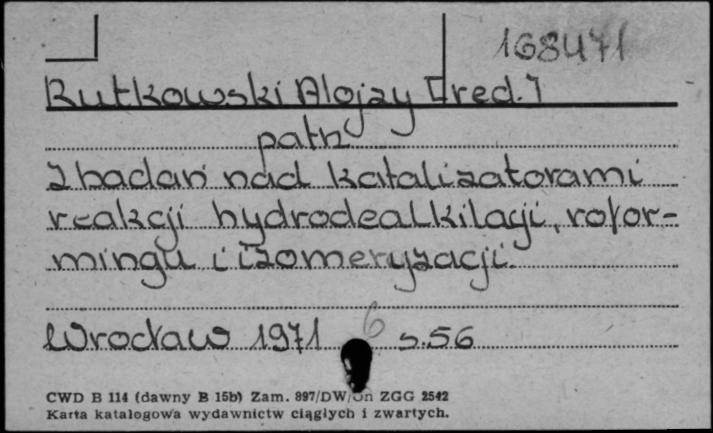 168471
Rutkowski Alojzy [red.]
patrz
Z badań nad katalizatorami
reakcji hydrodealkilacji, refor-
mingu i izomeryzacji.
Wrocław 1971 6 s.56
CWD B 114 (dawny B 15b) Zam. 897/DW/Gn ZGG 2542
Karta katalogowa wydawnictw ciągłych i zwartych.